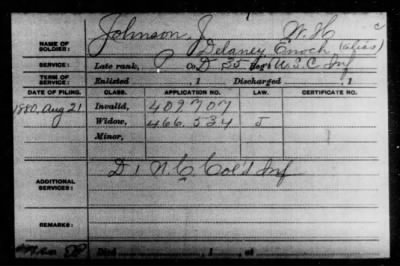 NAME OF SOLDIER: Johnson, J. W. H. c
Delaney Enoch (alias)
SERVICE: Late rank, P Co. D 35 Reg't U.S.C. Inf
TERM OF SERVICE: Enlisted , 1 Discharged , 1
DATE OF FILING. CLASS. APPLICATION NO. LAW. CERTIFICATE NO.
1880, Aug 21 Invalid, 409707
Widow, 466,534 J
Minor,
ADDITIONAL SERVICES: D 1 N.C. Col'd Inf
REMARKS:
Died , 1 , at